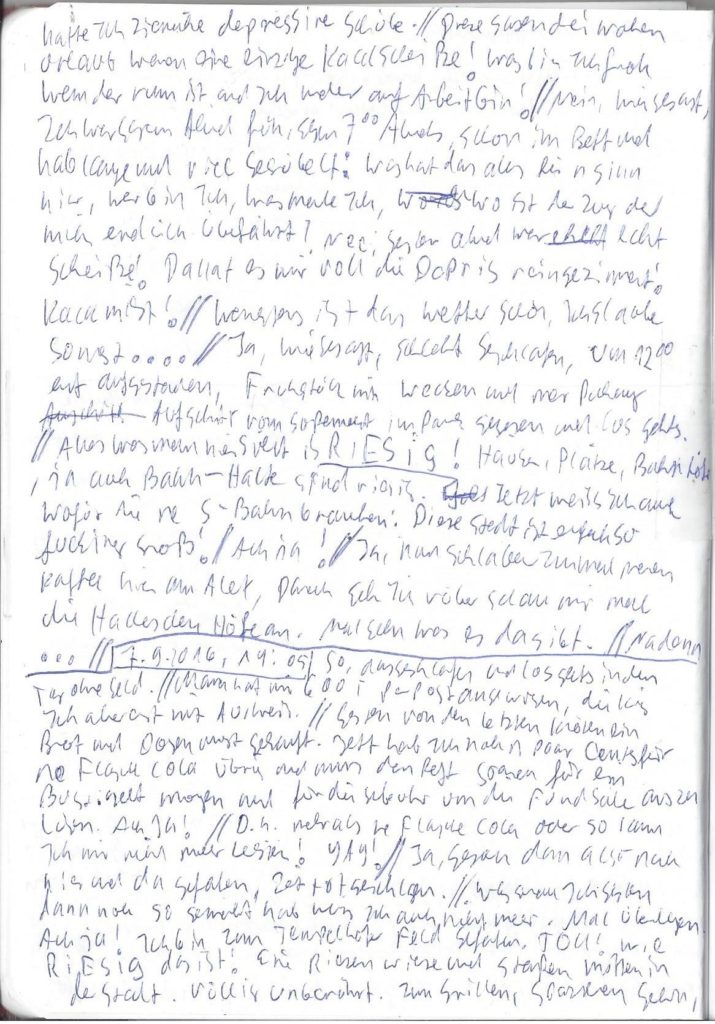 hatte ich ziemliche depressive Schübe. // Diese zwei
Urlaub waren eine einzige Kackscheiße! was bin ich froh
wenn der rum ist und ich wieder auf Arbeit bin! // Nein, wie gesagt,
Ich war gestern Abend früh, gegen 7⁰⁰ Abends, schon im Bett und
hab lange und viel gegrübelt: was hat das alles für n Sinn
hier, wer bin Ich, was mache Ich, wo ist der Zug der
mich endlich überfährt? nee, gestern Abend war echt
Scheiße! Da hat es mir voll die Depris reingezimmert!
Kackmist! // Wenigstens ist das Wetter schön, Ich glaube
sonst.... // Ja, wie gesagt, schlecht geschlafen, um 12⁰⁰
erst aufgestanden, Frühstück mit Wecken und ner Packung
Aufschnitt vom Supermarkt im Park gegessen und los gehts.
// Alles was man hier sieht is RIESIG! Häuser, Plätze, Bahnhöfe
, ja auch Bahn-Halte sind riesig. Jetzt weiß ich auch
wofür die ne S-Bahn brauchen. Diese Stadt ist einfach so
fucking groß! // Ach ja! // Ja, nun schlabber Ich nen
Kaffee hier am Alex, Danach geh Ich rüber schau mir mal
die Hackeschen Höfe an. Mal sehn was es da gibt. // Na dann
... // 7.9.2016, 19:05/ So, ausgeschlafen und los gehts in den
Tag ohne Geld. // Mama hat mir 600 € p Post angewiesen, die krieg
Ich aber erst mit Ausweis. // Gestern von den letzten Kröten ein
Brot und Dosenwurst gekauft. Jetzt hab Ich noch n paar Cents für
ne Flasche Cola übrig und muss den Rest sparen für ein
Busticket morgen und für die Gebühr um die Fundsache auszu
lösen. Ach ja! // D.h. mehr als ne Flasche Cola oder so kann
Ich mir nicht mehr leisten! YAY! // Ja, gestern dann also noch
hie und da gefahren, Zeit totgeschlagen. // was Ich gestern
dann noch so gemacht hab weiß Ich auch nicht mehr. Mal überlegen.
Ach ja! Ich bin zum Tempelhofer Feld gefahren. TOLL! wie
RIESIG das ist! Eine Riesen wiese und Straßen mitten in
der Stadt. Völlig unberührt. Zum Grillen, Spazieren gehen,